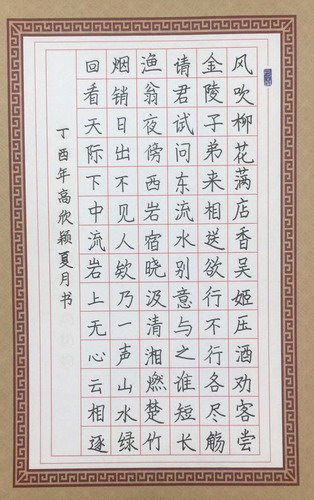 风吹柳花满店香吴姬压酒劝客尝
金陵子弟来相送欲行不行各尽觞
请君试问东流水别意与之谁短长
渔翁夜傍西岩宿晓汲清湘燃楚竹
烟销日出不见人欸乃一声山水绿
回看天际下中流岩上无心云相逐
丁酉年高欣颖夏月书